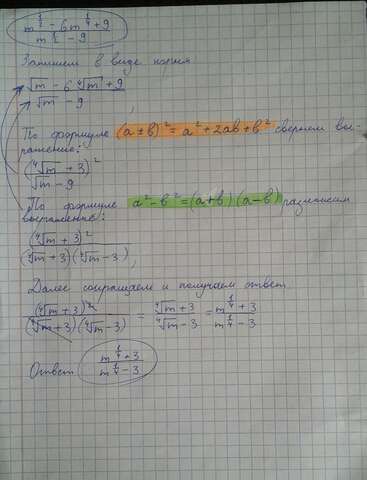 m^{1/2} - 6m^{1/4} + 9
m^{1/2} - 9
Запишем в виде корня
√m - 6 ⁴√m + 9
√m - 9 ;
По формуле (a ± b)² = a² + 2ab + b² свернем вы-
ражение:
(⁴√m + 3)²
√m - 9
По формуле a² - b² = (a + b) (a - b) разложим
выражение:
(⁴√m + 3)²
(⁴√m + 3) (⁴√m - 3) ;
Далее сокращаем и получаем ответ
(⁴√m + 3)² / (⁴√m + 3) (⁴√m - 3) = ⁴√m + 3 / ⁴√m - 3 = m^{1/4} + 3 / m^{1/4} - 3
Ответ m^{1/4} + 3 / m^{1/4} - 3